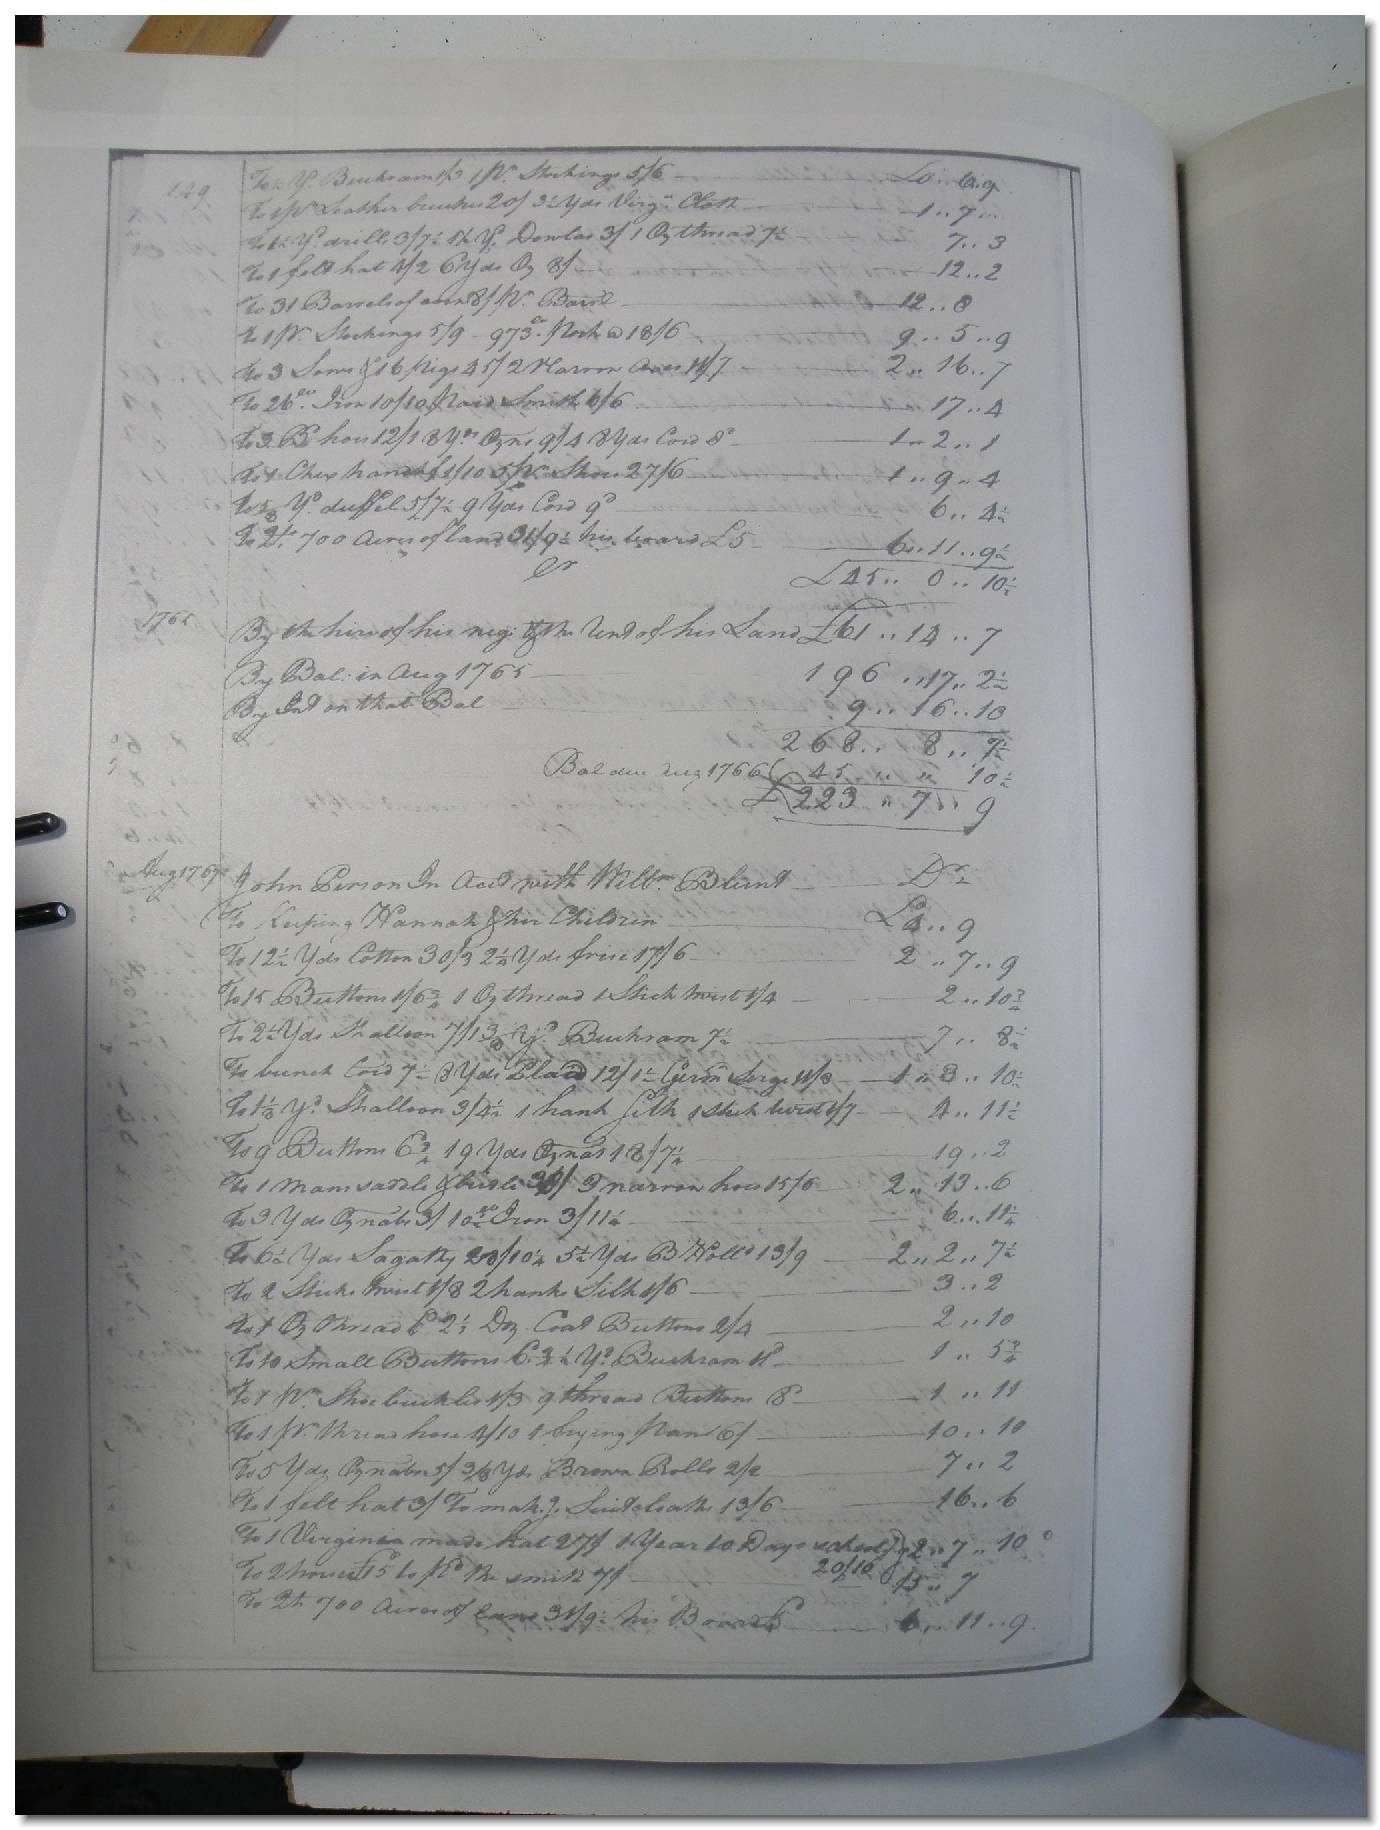 149
To ½ Yd. Buckram 1/3 1 pr. Stockings 5/6 £0..6..9
To 1 pr Leather breeches 20/ 3½ Yds Virga. Cloth 1..7..
Yd. drill 3/7½ 1½ Yd. Dowlas 3/ 1 Oz thread 7½ 7..3
To 1 felt hat 4/2 6 Yds Oz 8/ 12..2
To 31 Barrels of corn 8/ pr. Barrl 12..8
To 1 pr. Stockings 5/9 - 973 lb. Pork @ 18/6 9..5..9
To 3 Sows & 16 pigs 45/ 2 Narrow axes 11/7 2..16..7
To 26 lb. Iron 10/10 Paid Smith 6/6 17..4
To 3 B hoes 12/1 8 Yds Ozns 9/4 8 Yds Cord 8d 1..2..1
To 1 Chex handkf 1/10 5 pr. Shoes 27/6 1..9..4
Yd. duffel 5/7½ 9 Yds Cord 9d 6..4½
To 2t. 700 Acres of land 31/9½ his board £5 6..11..9½
Cr £45..0..10½
1765 By the hire of his neg: & the Rent of his Land £61..14..7
By Bal: in Aug 1765 196..17..2½
By Int on that Bal 9..16..10
268..8..7½
Bal due Aug 1766 45.. " 10½
£223..7..9
Aug 1767 John Person In Acct with Willm. Blunt Dr
To Keeping Hannah & her Children £4..9
To 12½ Yds Cotton 30/3 2¼ Yds frise 17/6 2..7..9
To 15 Buttons 1/6¾ 1 Oz thread 1 Stick twist 1/4 2..10¾
To 2¼ Yds Shalloon 7/1 3/8 Yd. Buckram 7½ 7..8½
To bunch Cord 7½ 8 Yds Plaid 12/ 1½ Germ Serge 11/3 1..3..10½
To 1⅛ Yd. Shalloon 3/4½ 1 hank Silk 1 stick twist 1/7 4..11½
To 9 Buttons 6¾ 19 Yds Oznas 18/7¼ 19..2
To 1 mans saddle & bridle 38/ 3 narrow hoes 15/6 2..13..6
To 3 Yds Oznabs 3/ 10½ lb Iron 3/11¼ 6..11¼
To 6½ Yds Sagathy 28/10¼ 5½ Yds B Holld 13/9 2..2..7½
To 2 Sticks twist 1/8 2 hanks Silk 1/6 3..2
To 1 Oz thread 6d 2⅓ Doz. Coat Buttons 2/4 2..10
To 10 Small Buttons 6¾ ½ Yd. Buckram 11d 1..5¾
To 1 pr. Shoe buckles 1/3 9 thread Buttons 8d 1..11
To 1 pr. thread hose 4/10 1 frying pan 6/ 10..10
To 5 Yds Oznabs 5/ Yds Brown Rolls 2/2 7..2
To 1 felt hat 3/ To makg. Suit cloaths 13/6 16..6
To 1 Virginia made hat 27/ 1 Year 10 Days 2..7..10
20/10
To 2 horses 15 to pd the smith 7/ 15..7
To 2t 700 Acres of land 31/9½ his Board £5 6..11..9